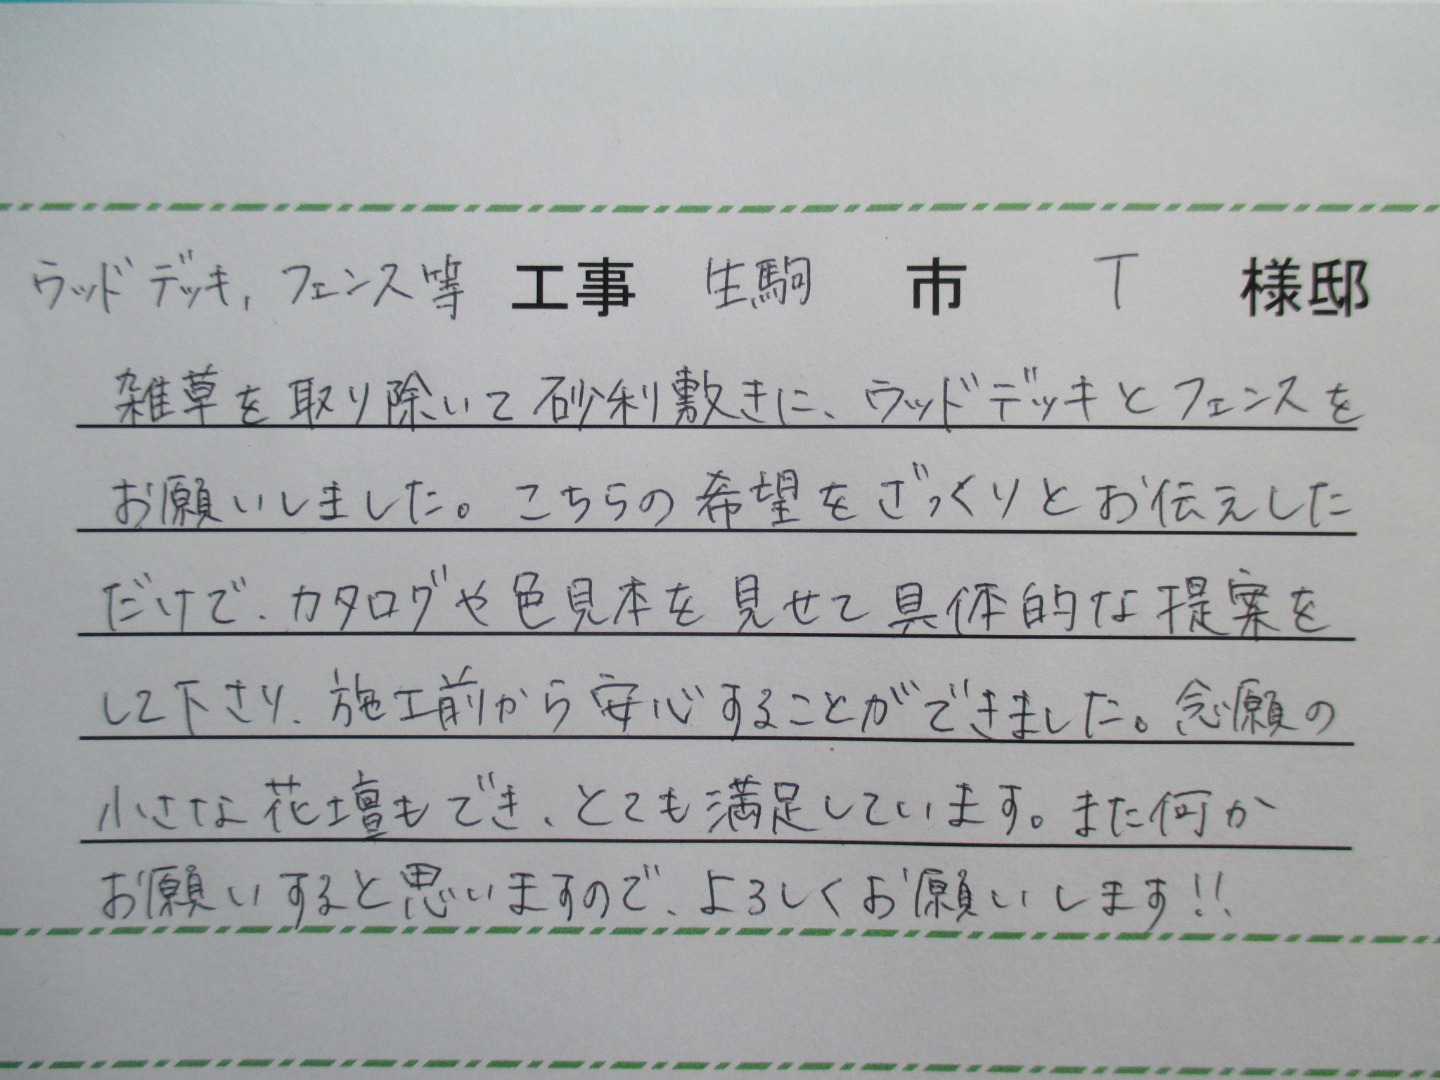 ウッドデッキ, フェンス等 工事 生駒 市 T 様邸
雑草を取り除いて砂利敷きに、ウッドデッキとフェンスを
お願いしました。こちらの希望をざっくりとお伝えした
だけで、カタログや色見本を見せて具体的な提案を
して下さり、施工前から安心することができました。念願の
小さな花壇もでき、とても満足しています。また何か
お願いすると思いますので、よろしくお願いします!!